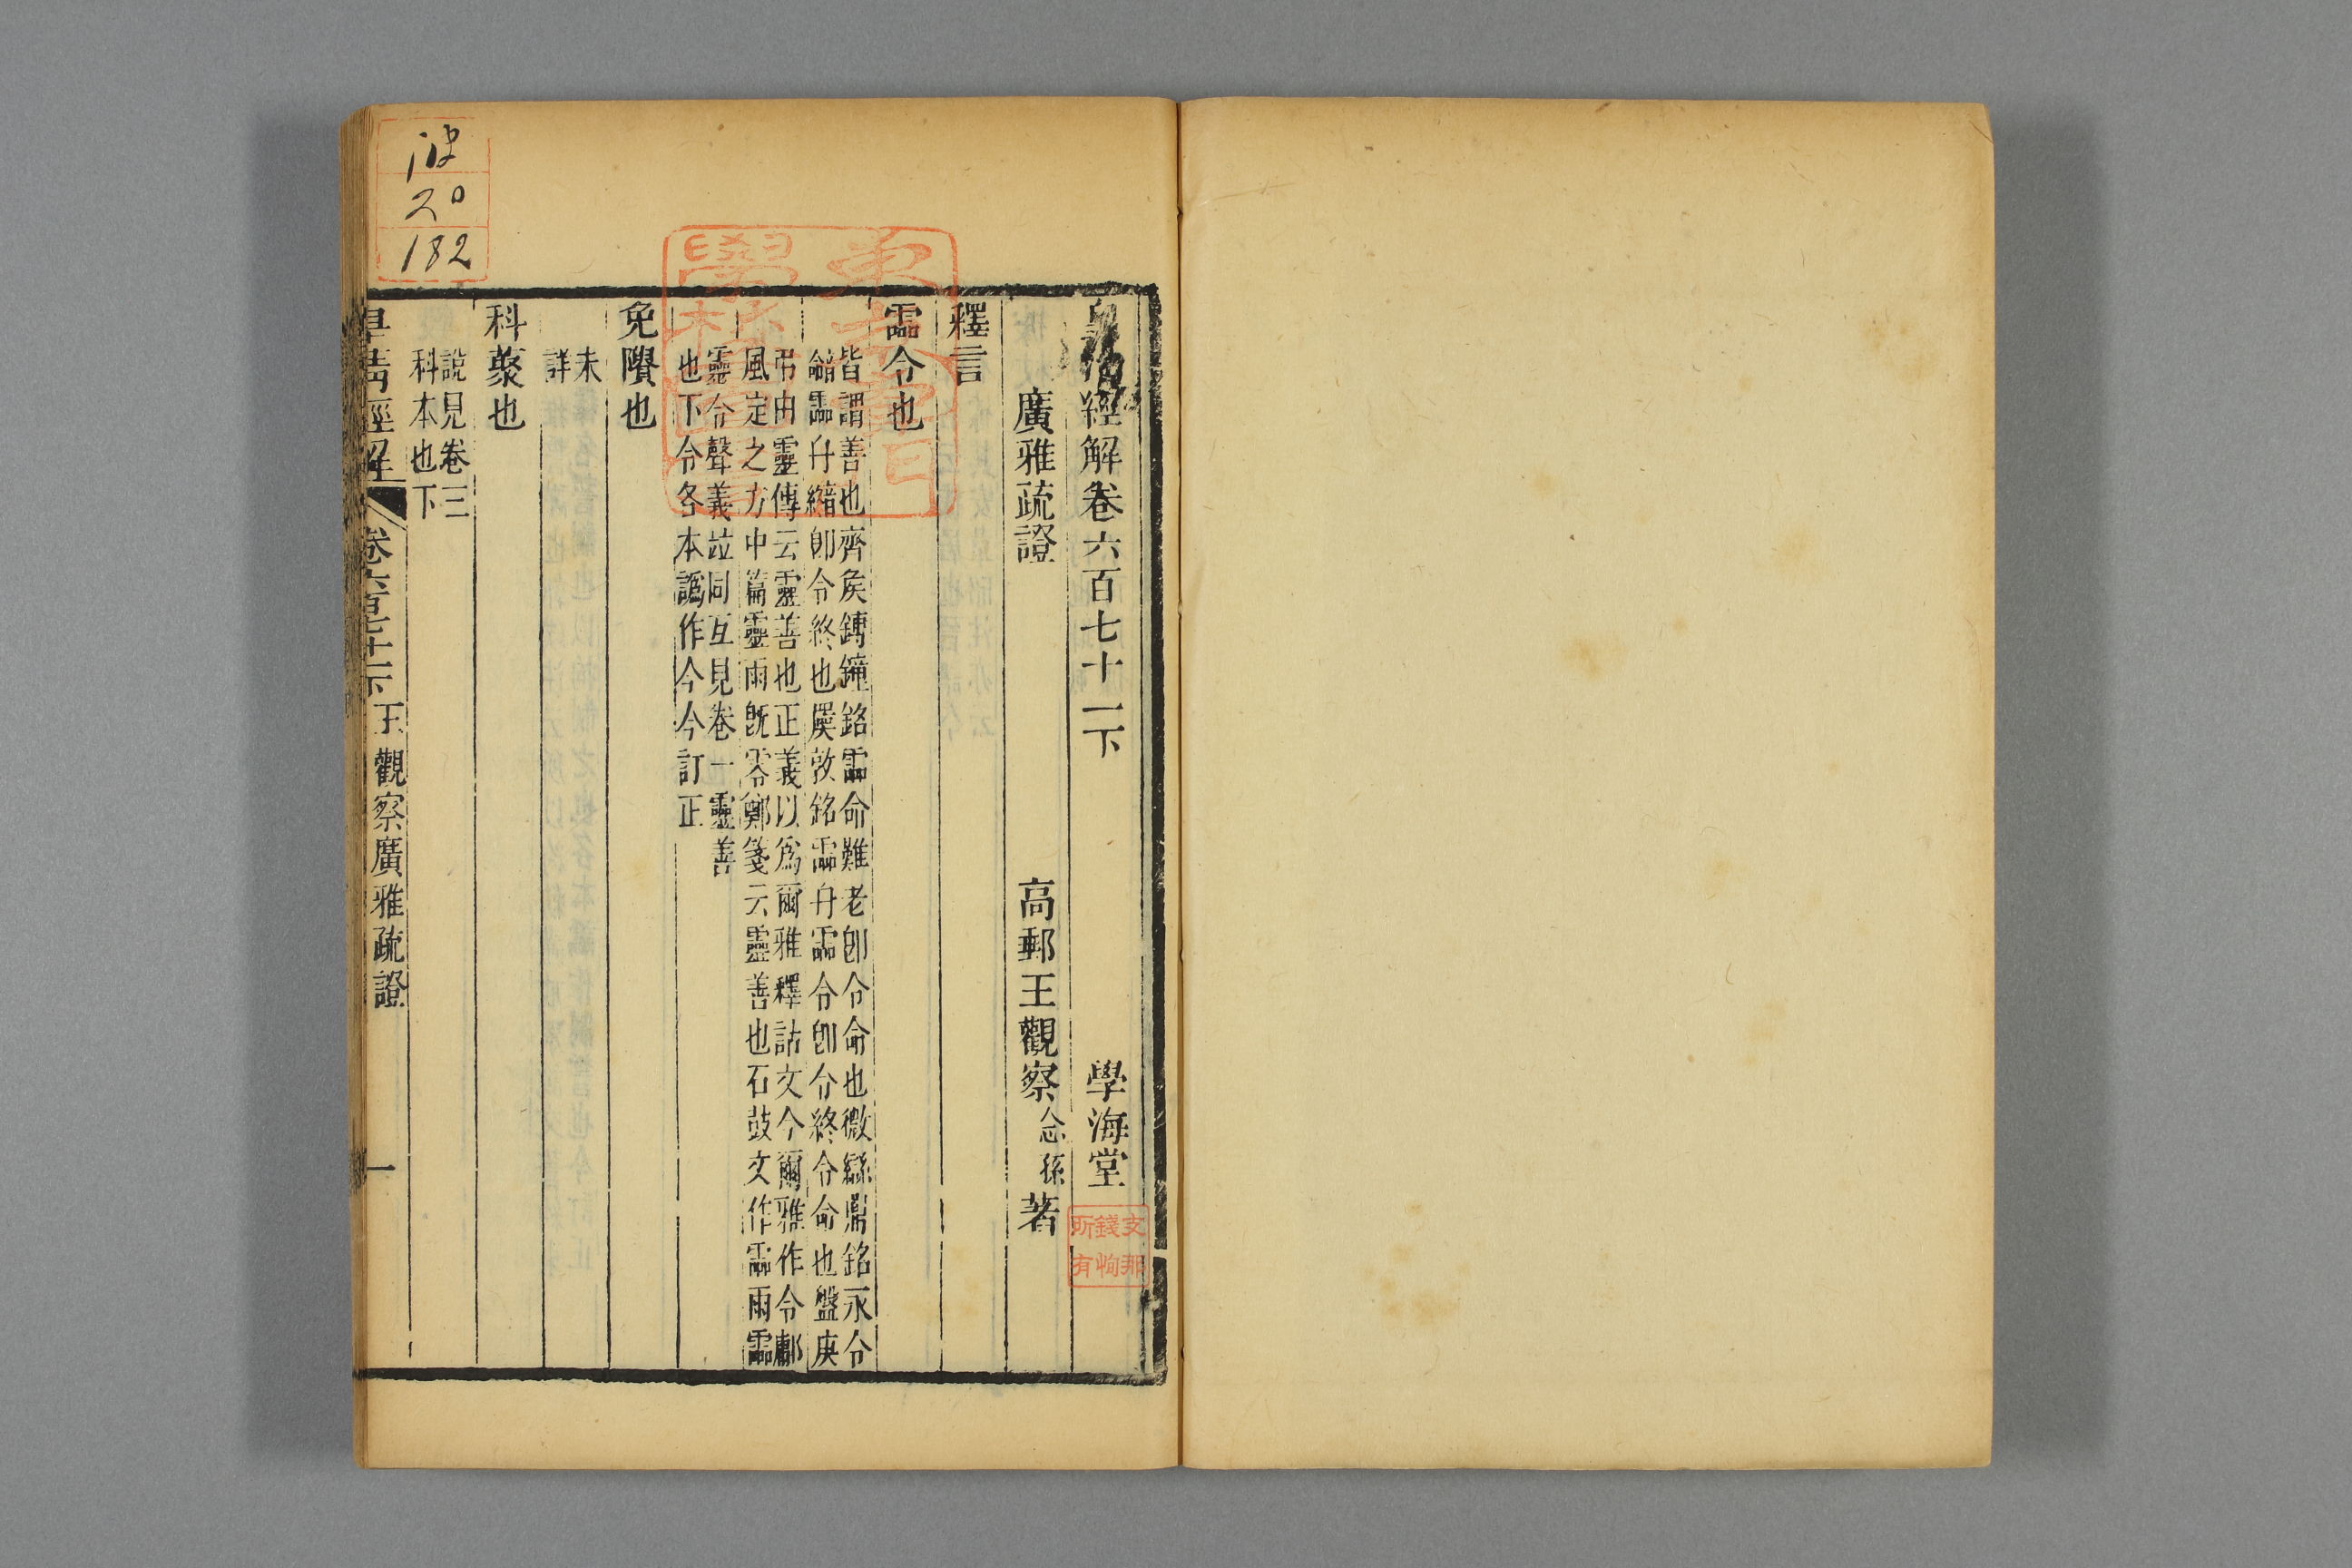 皇清經解卷六百七十一下
學海堂
廣雅疏證
高郵王觀察念孫著
釋言
霝令也
皆謂善也齊矦鎛鐘銘霝命難老卽令命也微䜌鼎銘永令
霝冬卽令終也敦銘霝令卽令終令命也盤庚
弔由靈傳云靈善也正義以爲爾雅釋詁文今爾雅作令鄘
風定之方中篇靈雨旣零鄭箋云靈善也石鼓文作霝雨霝
靈令聲義竝同互見卷一靈善
也下令各本譌作今今訂正
免隫也
未
詳
科藂也
說見卷三
科本也下
皇清經解
卷六百七十一下
王觀察廣雅疏證
一
支那
錢恂
所有
20
182